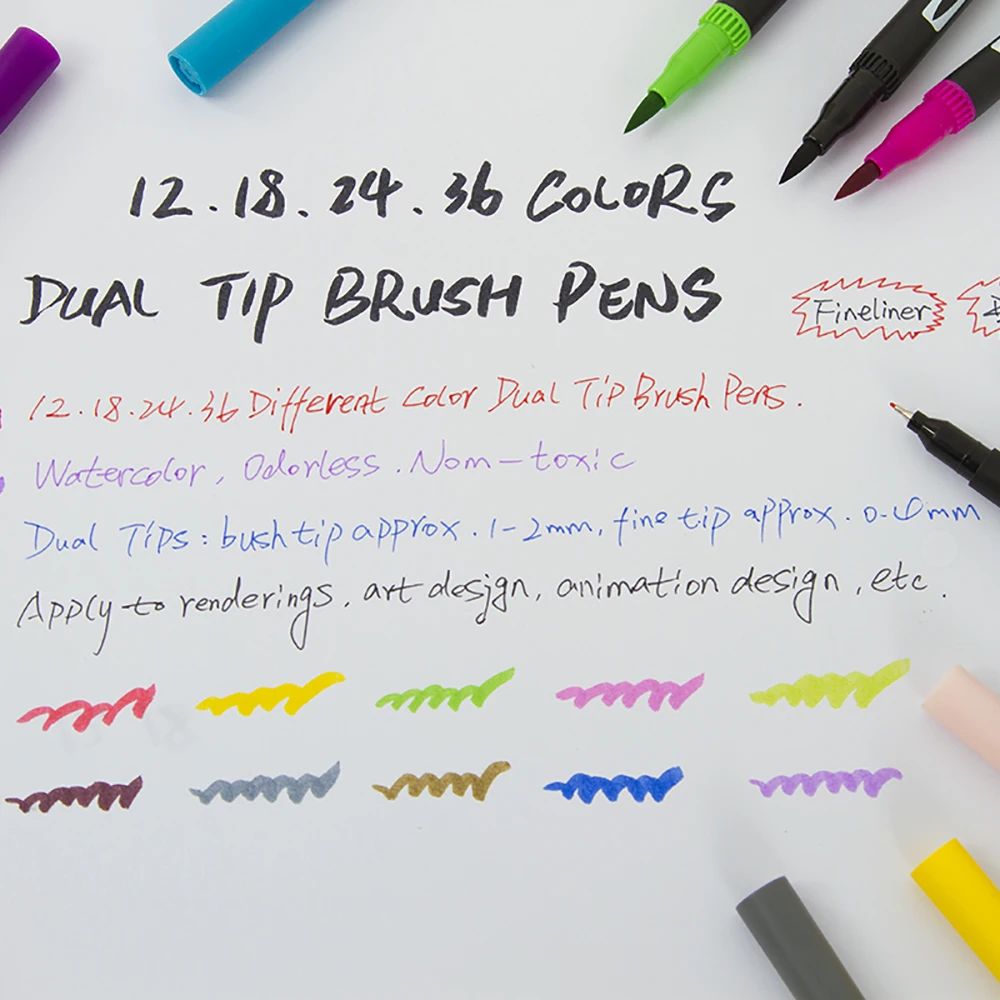 12.18.24.36 COLORS
DUAL TIP BRUSH PENS
Fineliner
12.18.24.36 Different Color Dual Tip Brush Pens.
Watercolor, Odorless. Nom-toxic
Dual Tips: bush tip approx. 1-2mm, fine tip approx. 0.4mm
Apply to renderings, art desjgn, animation design, etc.